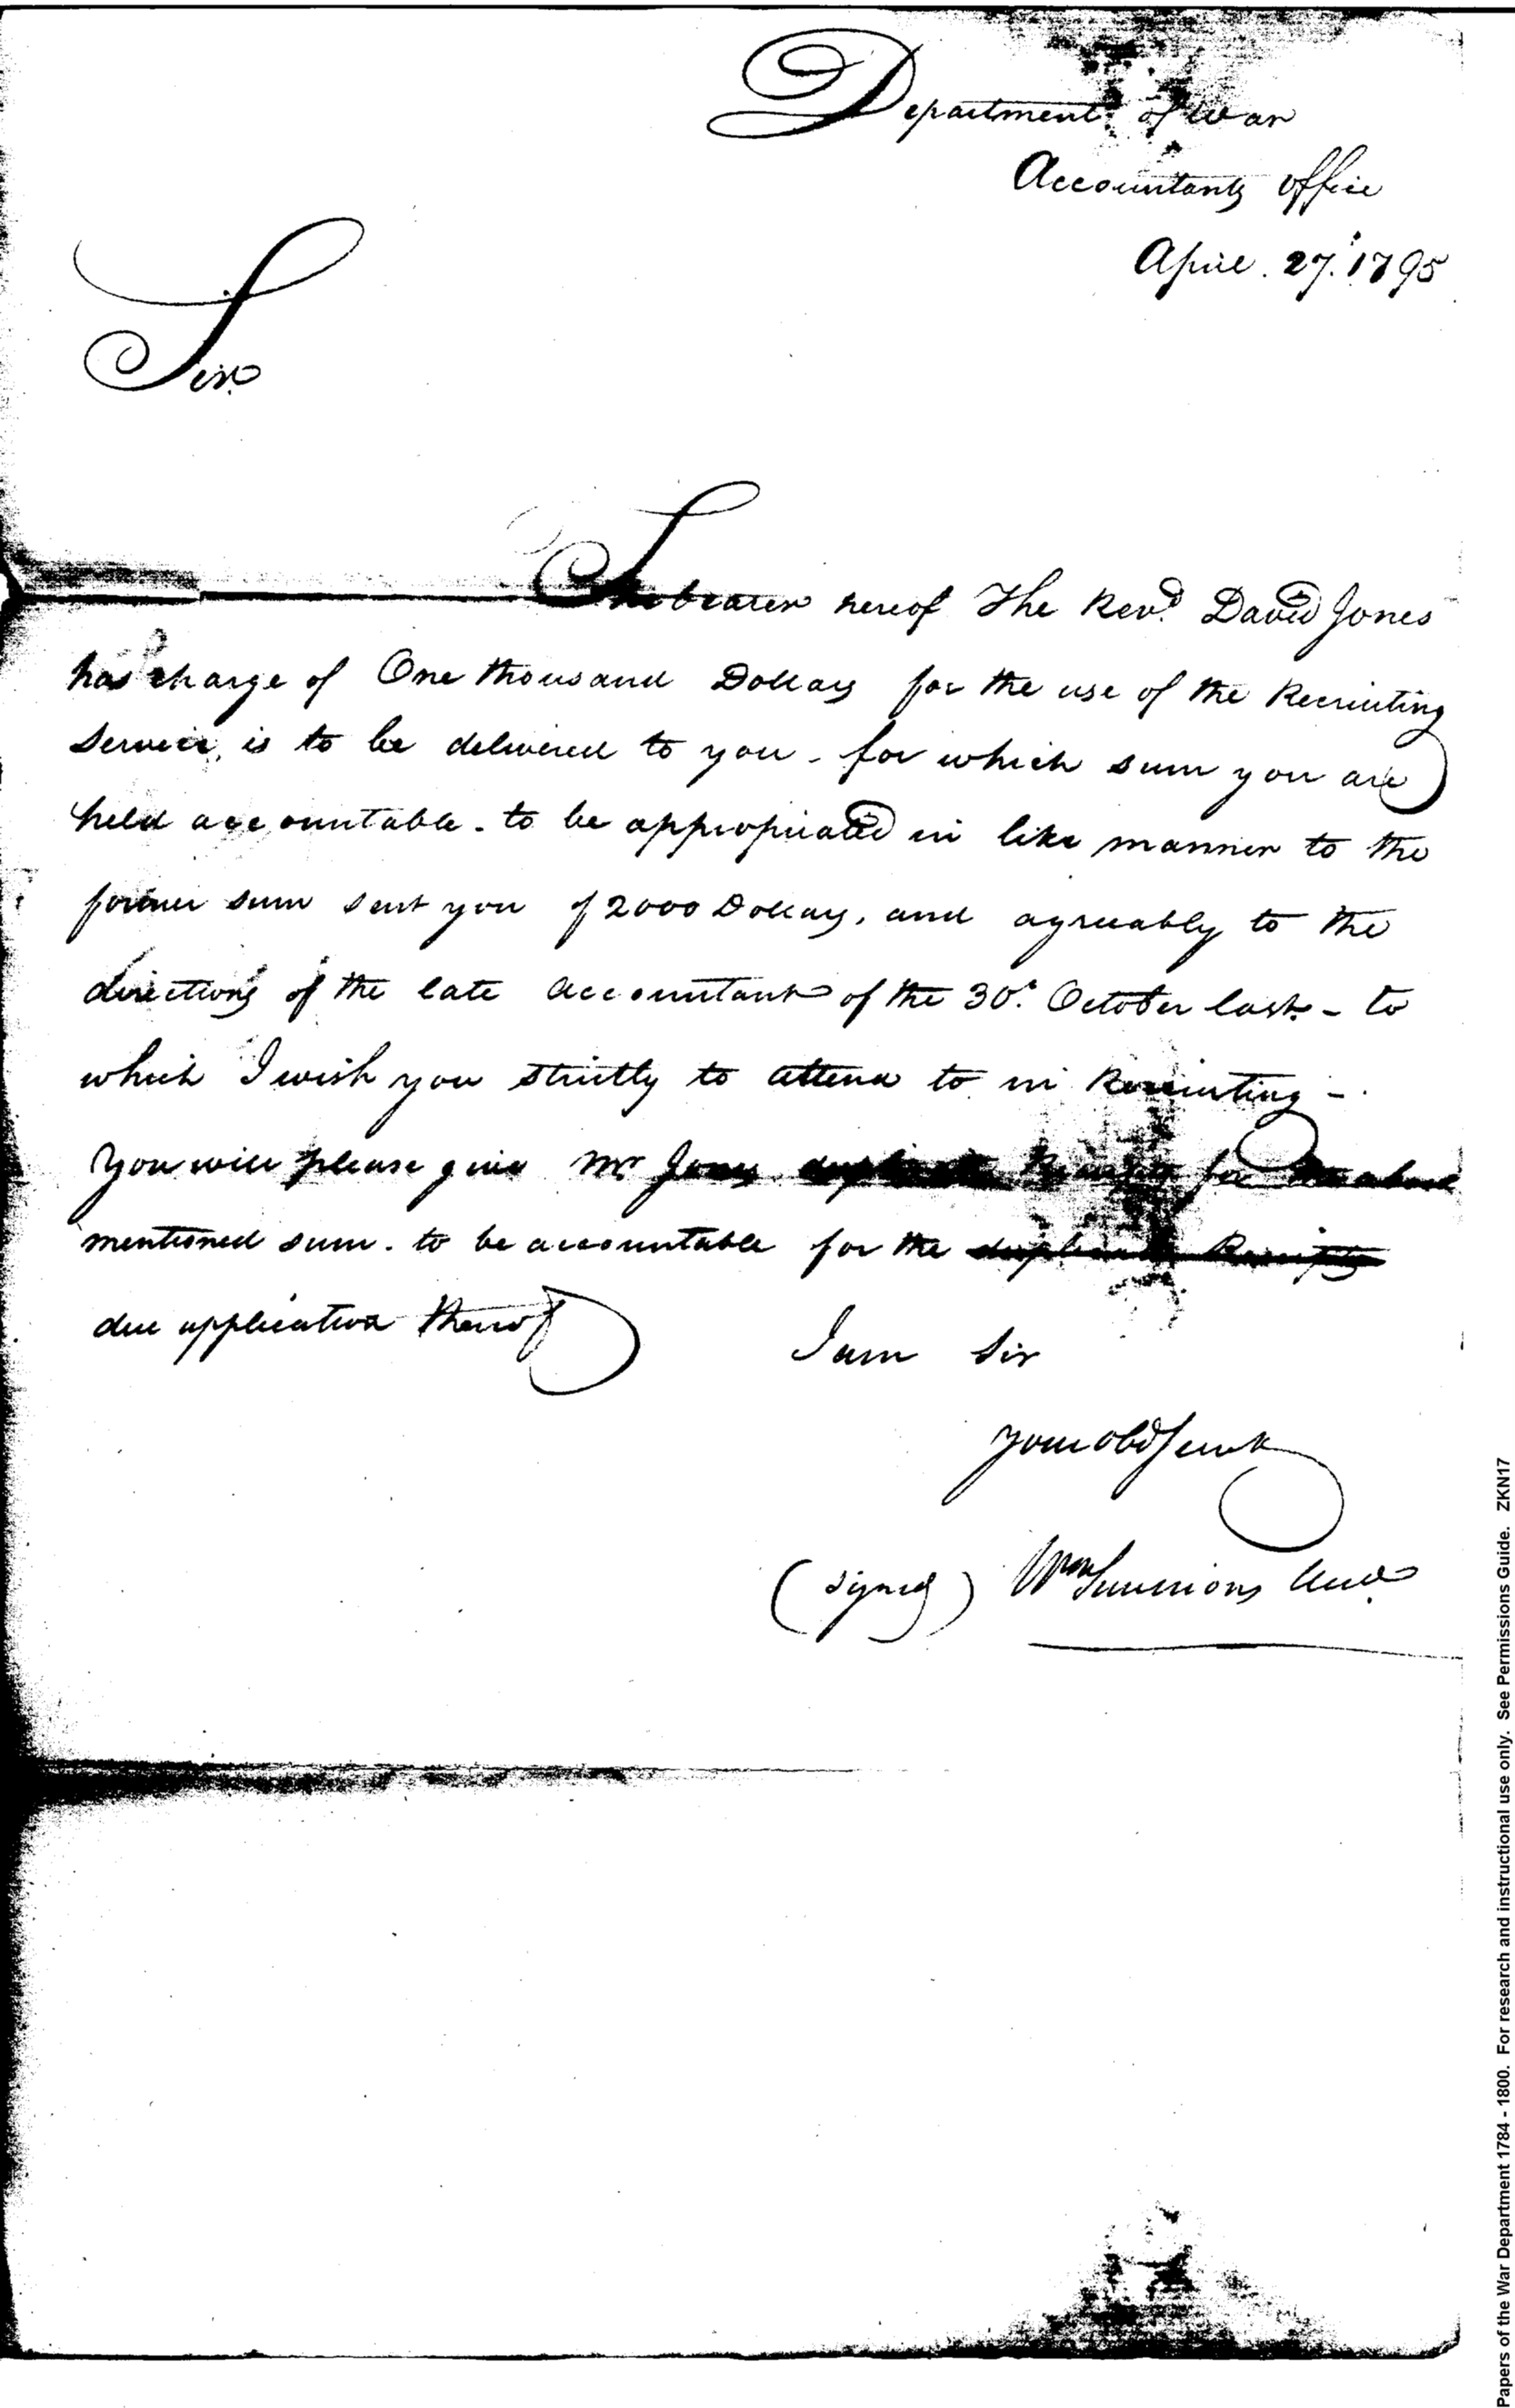 Department of War
Accountants office
April. 27. 1795
Sir
The bearer hereof The Revd. David Jones
has charge of One thousand Dollars for the use of the Recruiting
Service, is to be delivered to you - for which sum you are
held accountable - to be appropriated in like manner to the
former sum sent you of 2000 Dollars, and agreeably to the
directions of the late accountant of the 30th October last - to
which I wish you strictly to attend to in Recruiting -
You will please give Mr Jones duplicate Receipts for the above
mentioned sum. to be accountable for the duplicate Receipts
due application thereof
I am Sir
your obd Servt
(signed) Wm Simmons Acct.
Papers of the War Department 1784 - 1800. For research and instructional use only. See Permissions Guide. ZKN17